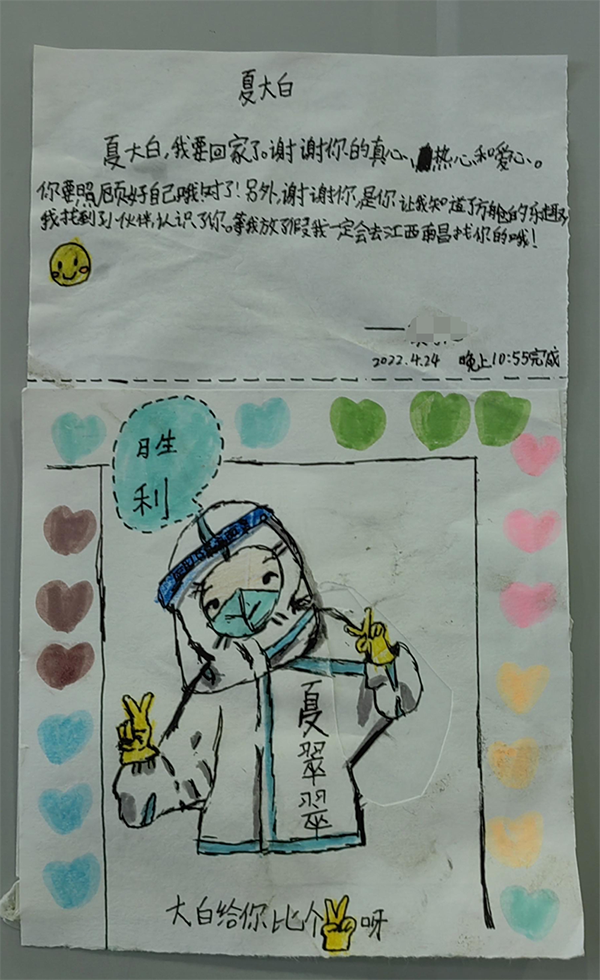 夏大白
夏大白,我要回家了。谢谢你的真心、热心和爱心。
你要照顾好自己哦!对了!另外,谢谢你,是你让我知道了方舱的乐趣,
我找到了小伙伴,认识了你。等我放了假我一定会去江西南昌找你的哦!
——
2022.4.24 晚上10:55完成
胜
利
夏翠翠
大白给你比个✌呀